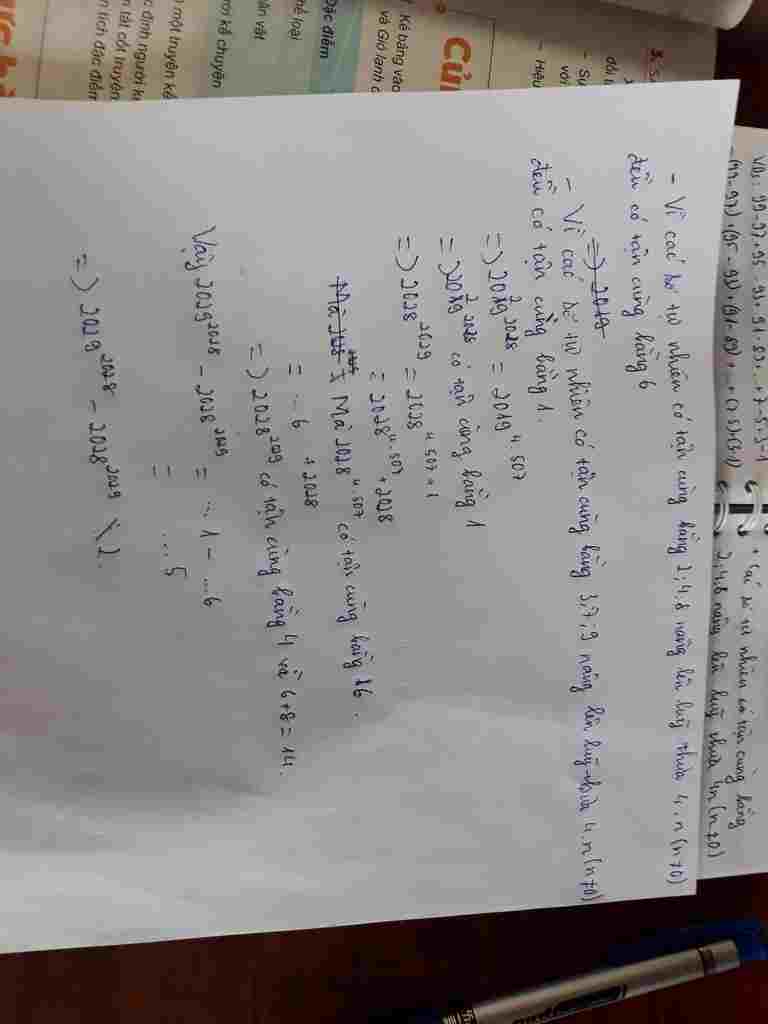 - Vì các số tự nhiên có tận cùng bằng 2; 4; 8 nâng lên luỹ thừa 4.n (n≠0)
đều có tận cùng bằng 6
=) 2019
- Vì các số tự nhiên có tận cùng bằng 3; 7; 9 nâng lên luỹ thừa 4.n (n≠0)
đều có tận cùng bằng 1.
=) 2029^2028 = 2019^4.507
=) 2029^2028 có tận cùng bằng 1
=) 2028^2029 = 2028^4.507+1
= 2028^4.507 + 2028
Mà 2028^4.507 có tận cùng bằng 6.
= ...6 + 2028
=) 2028^2029 có tận cùng bằng 4 vì 6+8=14.
Vậy 2029^2028 - 2028^2029 = ...1 - ...6
= ...5
=) 2029^2028 - 2028^2029 \ 2.
VD: 99-97+95-93+91-89+...+7-5+3-1
=(99-97)+(95-93)+(91-89)+...+(7-5)+(3-1)
+ Các số tự nhiên có tận cùng bằng
2; 4; 8 nâng lên luỹ thừa 4n (n≠0)
Đặc điểm
hể loại
ân vật
một truyện kể
Kẻ bảng vào
và Gió lạnh
Củ
3. S
- Hiệu